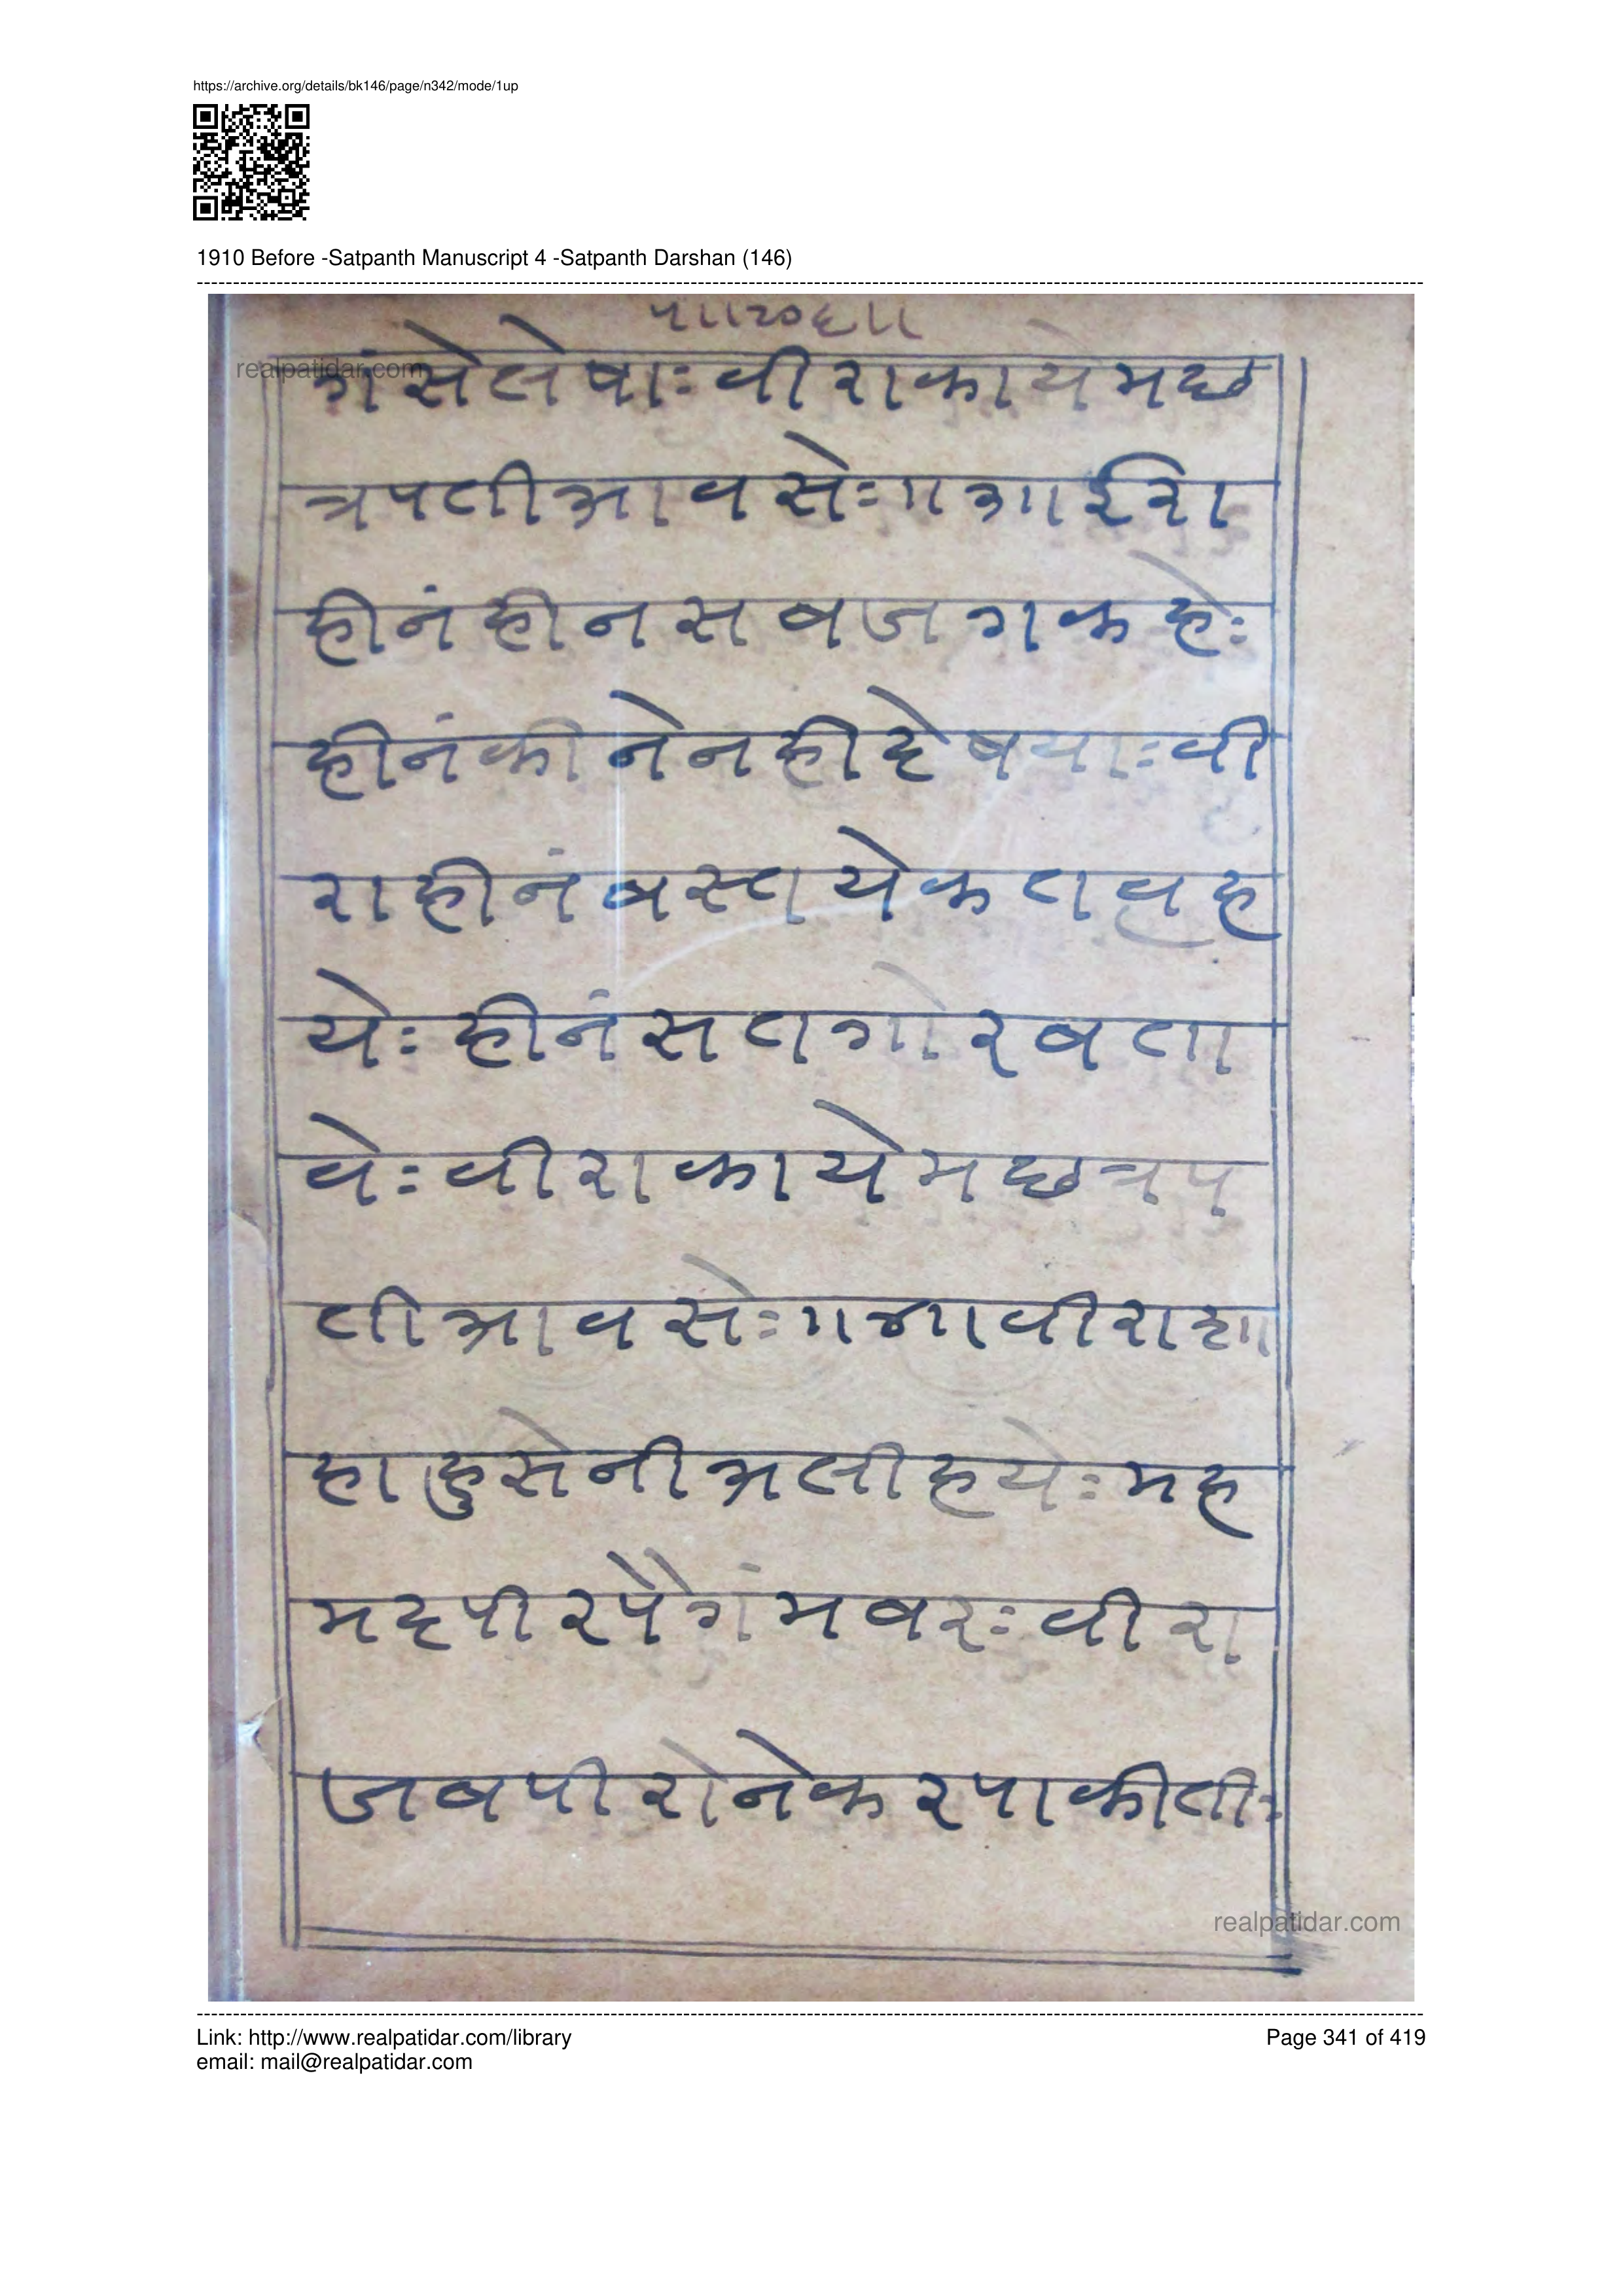 https://archive.org/details/bk146/page/n342/mode/1up
1910 Before -Satpanth Manuscript 4 -Satpanth Darshan (146)
realpatidar.com
गंसेलेषाः वीराकायेमछ
त्रपतीआवसेः॥३॥ईरा
हीनंहीनसबजगकहेः
हीनंकीनेनहीदेषयाः वी
राहीनंबस्तयेकतवह
येः हीनंसतगोरबता
वेः वीराकायेमछत्रप
तीआवसेः॥४॥वीराशा
हाहुसेनीअलीहयेः मह
मदपीरपैगंमबरः वीरा
जबपीरोनेकरपाकीतीः
realpatidar.com
Link: http://www.realpatidar.com/library
email: mail@realpatidar.com
Page 341 of 419